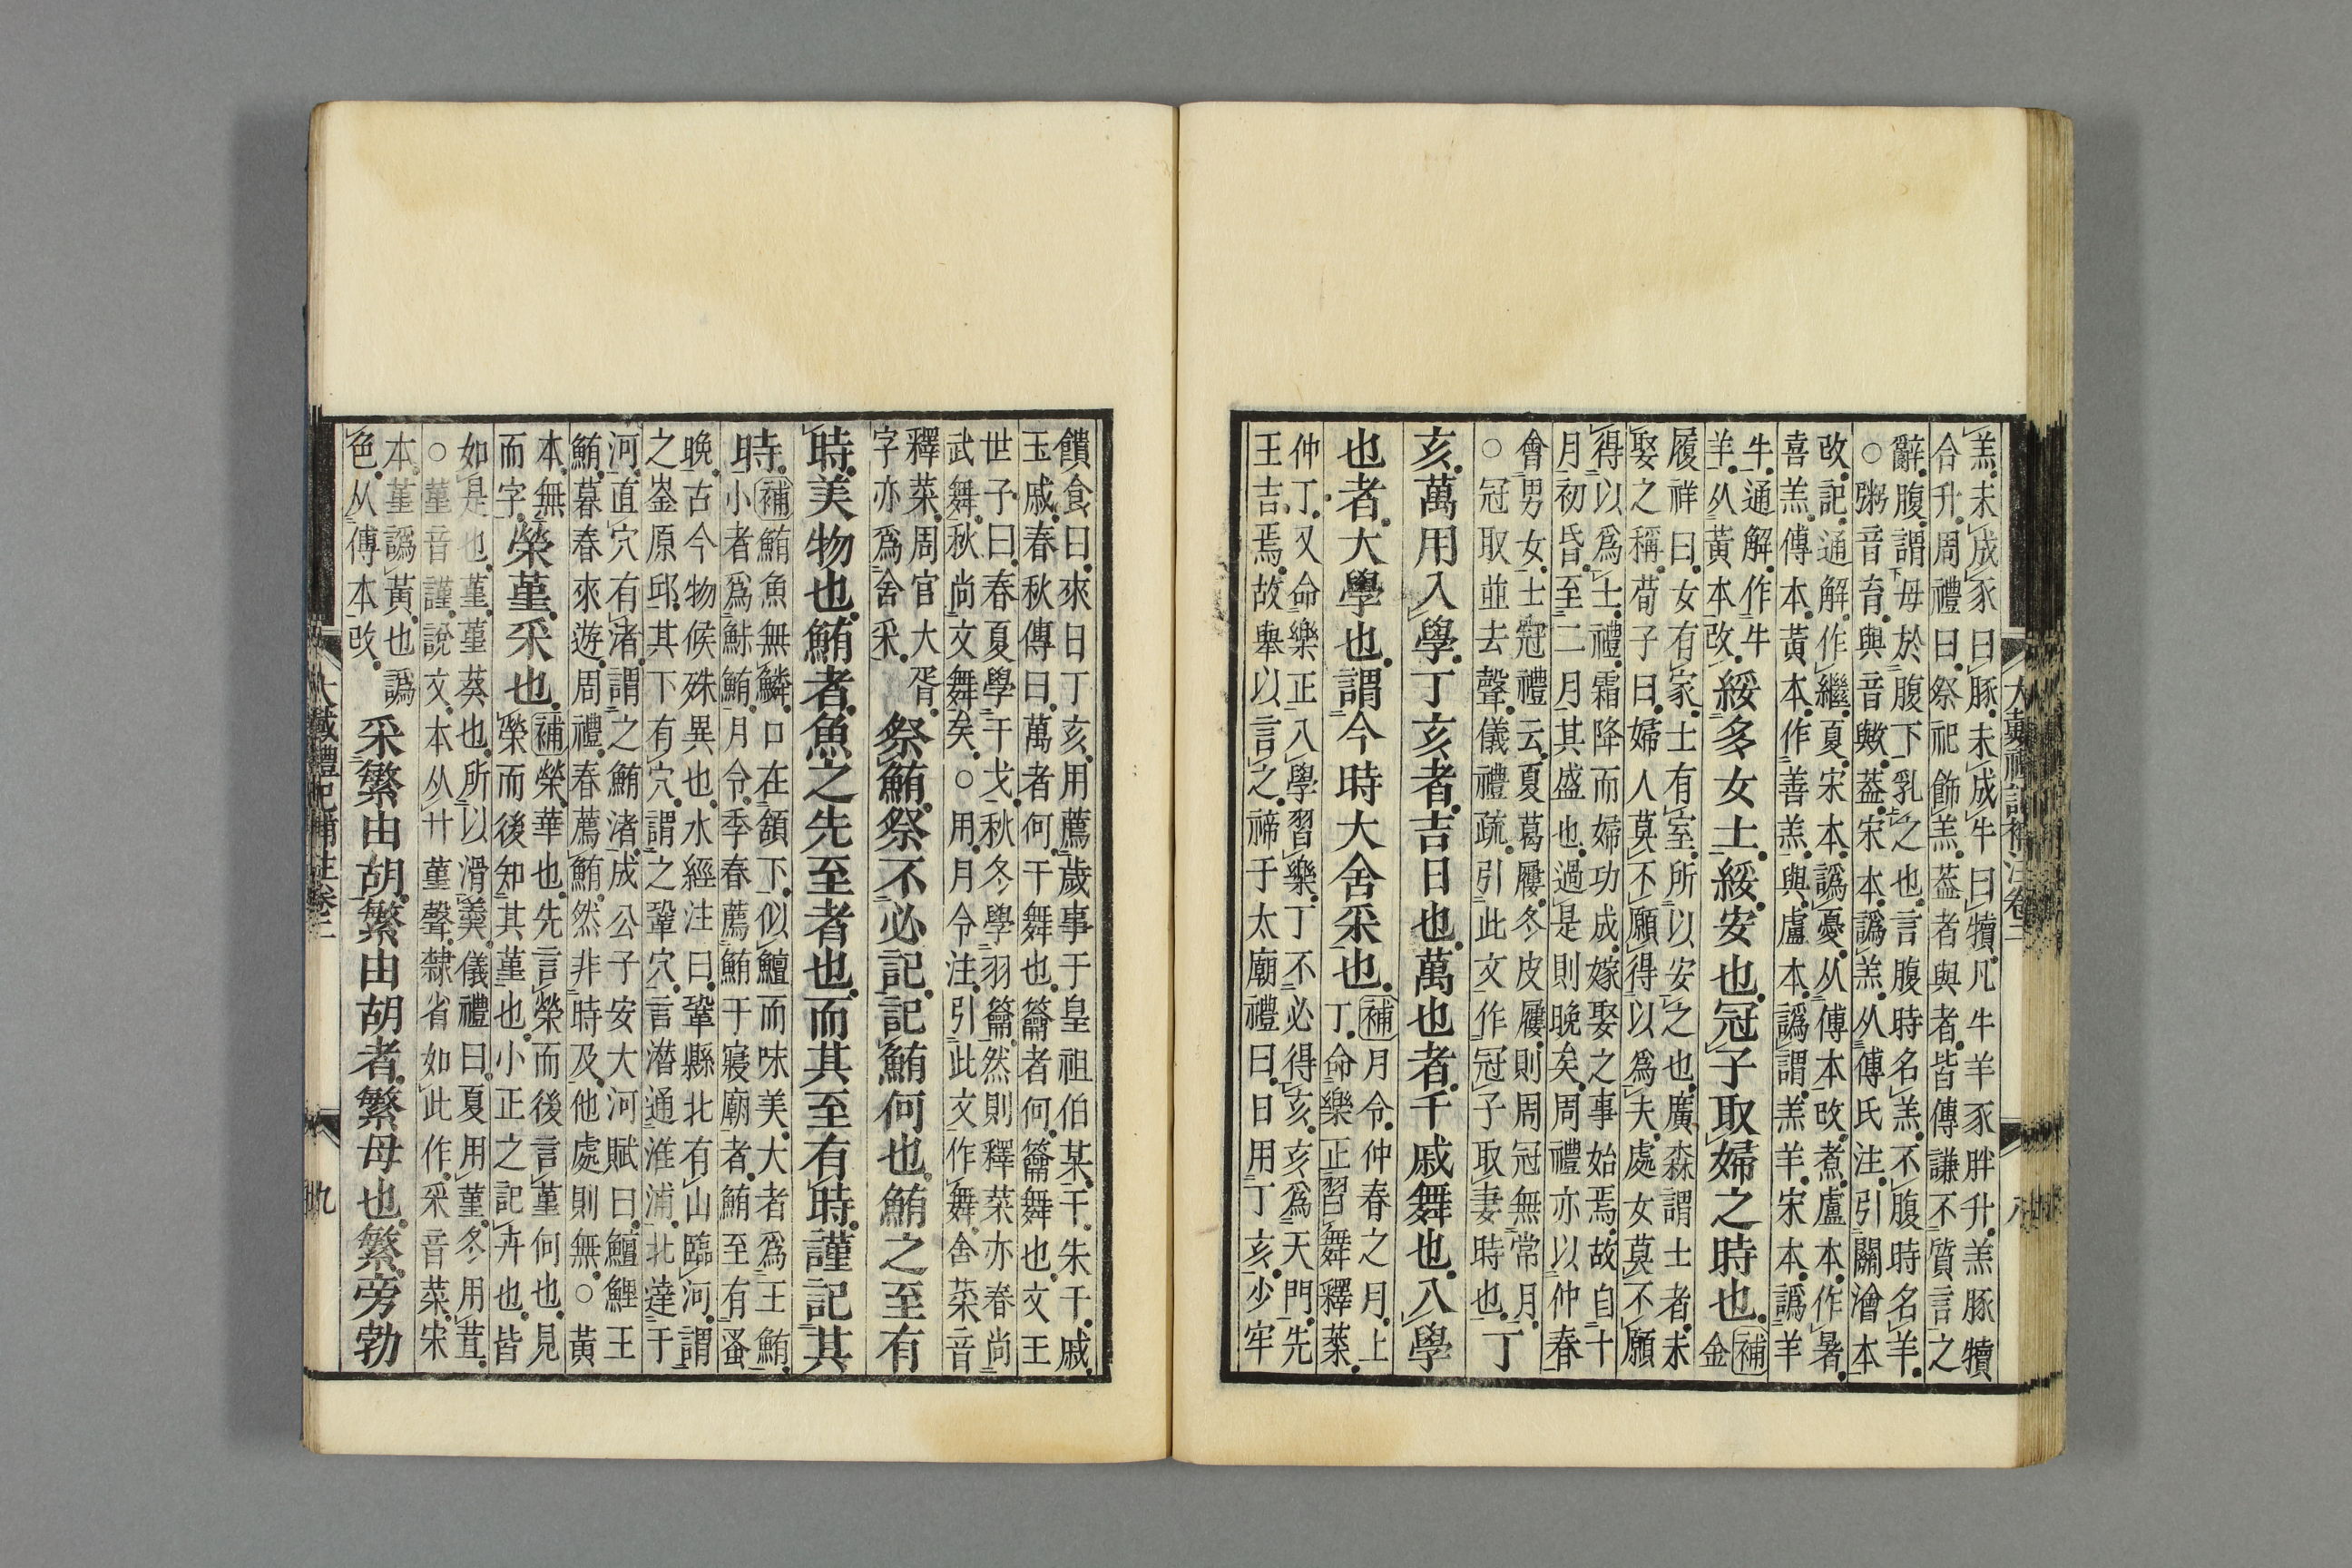 羔未成豕曰豚未成牛曰犢凡牛羊豕胖升羔豚犢
合升周禮曰祭祀飾羔葢者與者皆傳謙不質言之
辭腹謂毋於腹下乳之也言腹時名羔不腹時名羊
○粥音育與音歟葢宋本譌羔从傅氏注引關澮本
改記通解作繼夏宋本譌憂从傅本改煮盧本作暑
喜羔傅本黃本作善羔與盧本譌謂羔羊宋本譌羊
牛通解作牛
羊从黃本改
綏多女士綏安也冠子取婦之時也
補
金
履祥曰女有家士有室所以安之也廣森謂士者未
娶之稱荀子曰婦人莫不願得以為夫處女莫不願
得以爲士禮霜降而婦功成嫁娶之事始焉故自十
月初昏至二月其盛也過是則晚矣周禮亦以仲春
會男女士冠禮云夏葛屨冬皮屨則周冠無常月
○冠取並去聲儀禮疏引此文作冠子取妻時也
丁
亥萬用入學丁亥者吉日也萬也者干戚舞也入學
也者大學也謂今時大舍采也
補月令仲春之月上
丁命樂正習舞釋菜
仲丁又命樂正入學習樂丁不必得亥亥爲天門先
王吉焉故舉以言之禘于太廟禮曰日用丁亥少牢
大戴禮記補注卷二
八
饋食曰來日丁亥用薦歲事于皇祖伯某干朱干戚
玉戚春秋傳曰萬者何干舞也籥者何籥舞也文王
世子曰春夏學干戈秋冬學羽籥然則釋菜亦春尚
武舞秋尚文舞矣○用月令注引此文作舞舍菜音
釋菜周官大胥
字亦爲舍采
祭鮪祭不必記記鮪何也鮪之至有
時美物也鮪者魚之先至者也而其至有時謹記其
時
補鮪魚無鱗口在頷下似鱣而味美大者爲王鮪
小者爲鮛鮪月令季春薦鮪于寢廟者鮪至有蚤
晚古今物候殊異也水經注曰鞏縣北有山臨河謂
之崟原邱其下有穴謂之鞏穴言潛通淮浦北達于
河直穴有渚謂之鮪渚成公子安大河賦曰鱣鯉王
鮪暮春來遊周禮春薦鮪然非時及他處則無○黃
本無
而字
榮堇采也
補榮華也先言榮而後言堇何也見
榮而後知其堇也小正之記卉也皆
如是也堇堇葵也所以滑羹儀禮曰夏用堇冬用荁
○堇音謹說文本从艸堇聲隸省如此作采音菜宋
本堇譌黃也譌
色从傅本改
采蘩由胡蘩由胡者蘩母也蘩旁勃
大戴禮記補注卷二
九